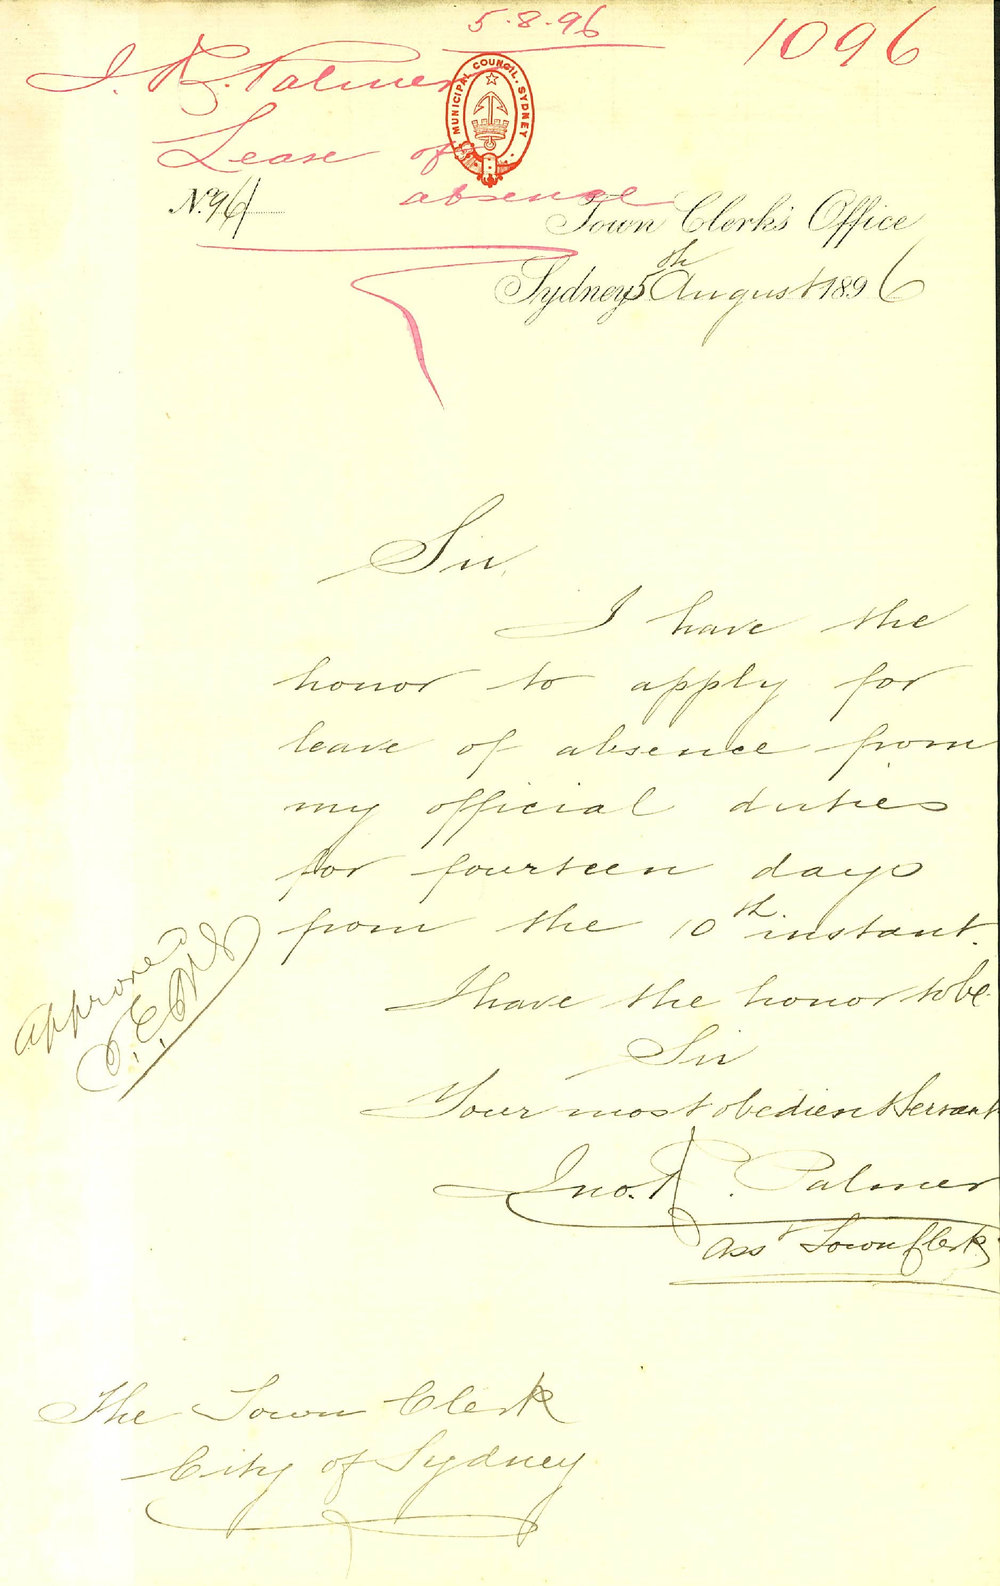 5.8.96
1096
J. R. Palmer
MUNICIPAL COUNCIL. SYDNEY
Lease of
absence
No. 96/
Town Clerk's Office
Sydney 5th August 1896
Sir,
I have the
honor to apply for
leave of absence from
my official duties
for fourteen days
from the 10th instant.
Approved
I have the honor to be
Sir
Your most obedient Servant
Jno. R. Palmer
Asst Town Clerk
The Town Clerk
City of Sydney